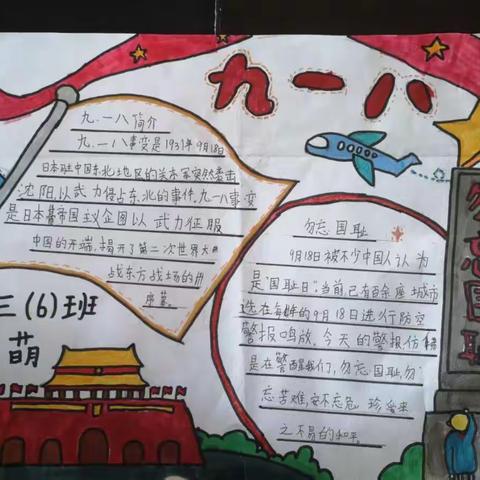 九一八
九.一八简介
九.一八事变是1931年9月18日
日本驻中国东北地区的关东军突然袭击
沈阳,以武力侵占东北的事件,九一八事变
是日本帝国主义企图以武力征服
中国的开端,揭开了第二次世界大
战东方战场的
序幕。
三(6)班
萌
勿忘国耻
9月18日被不少中国人认为
是"国耻日"。当前,已有百余座城市
选在每年的9月18日进行防空
警报鸣放。今天的警报仿
是在警醒我们,勿忘国耻,勿
忘苦难,安不忘危,珍爱来
之不易的和平。
勿忘国耻